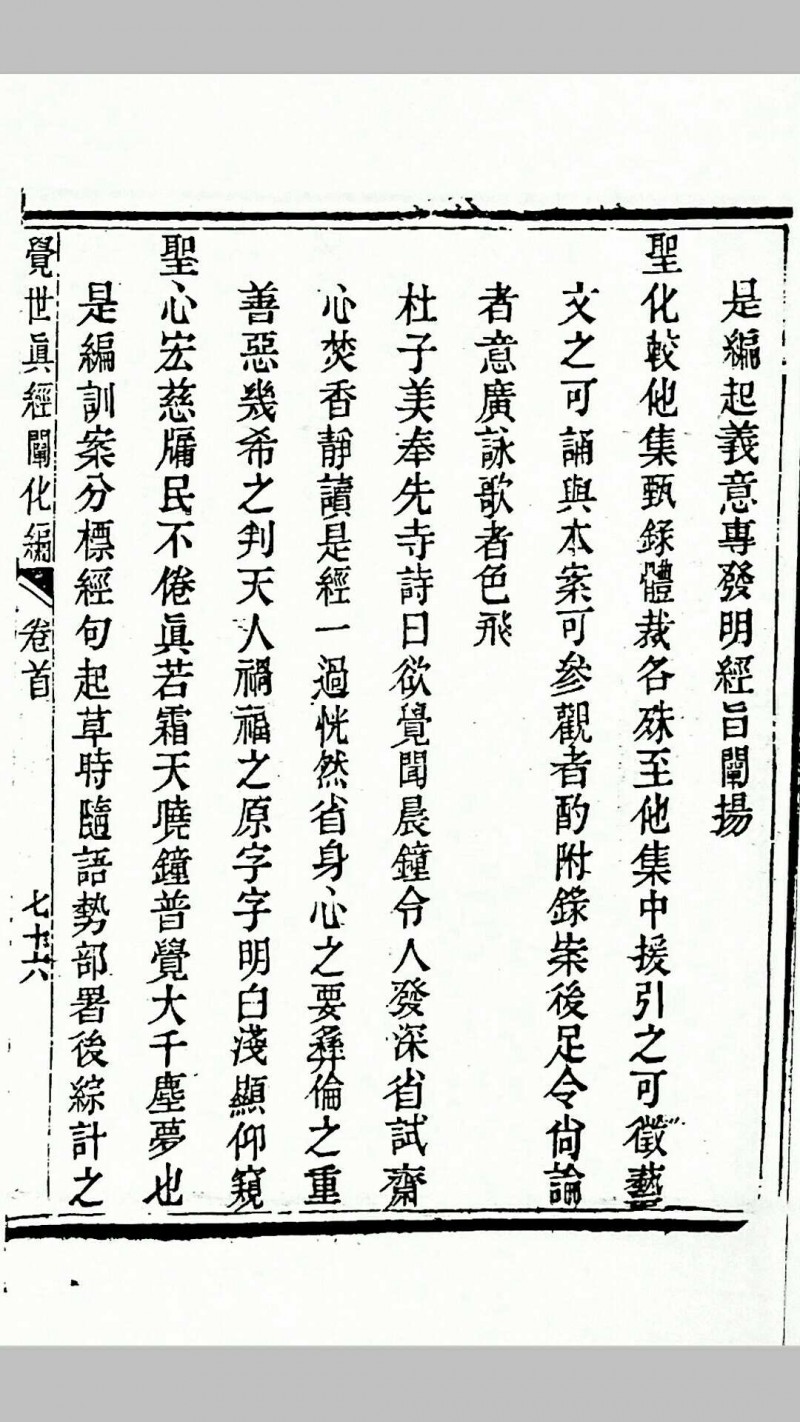 是編起義意專發明經旨闡揚
聖化較他集甄錄體裁各殊至他集中援引之可徵藝
文之可誦與本案可參觀者酌附錄案後足令尙論
者意廣詠歌者色飛
杜子美奉先寺詩曰欲覺聞晨鐘令人發深省試齋
心焚香靜讀是經一過恍然省身心之要彞倫之重
善惡幾希之判天人禍福之原字字明白淺顯仰窺
聖心宏慈牖民不倦眞若霜天曉鐘普覺大千塵夢也
是編訓案分標經句起草時隨語勢部署後綜計之
覺世眞經闡化編 卷首 七十六